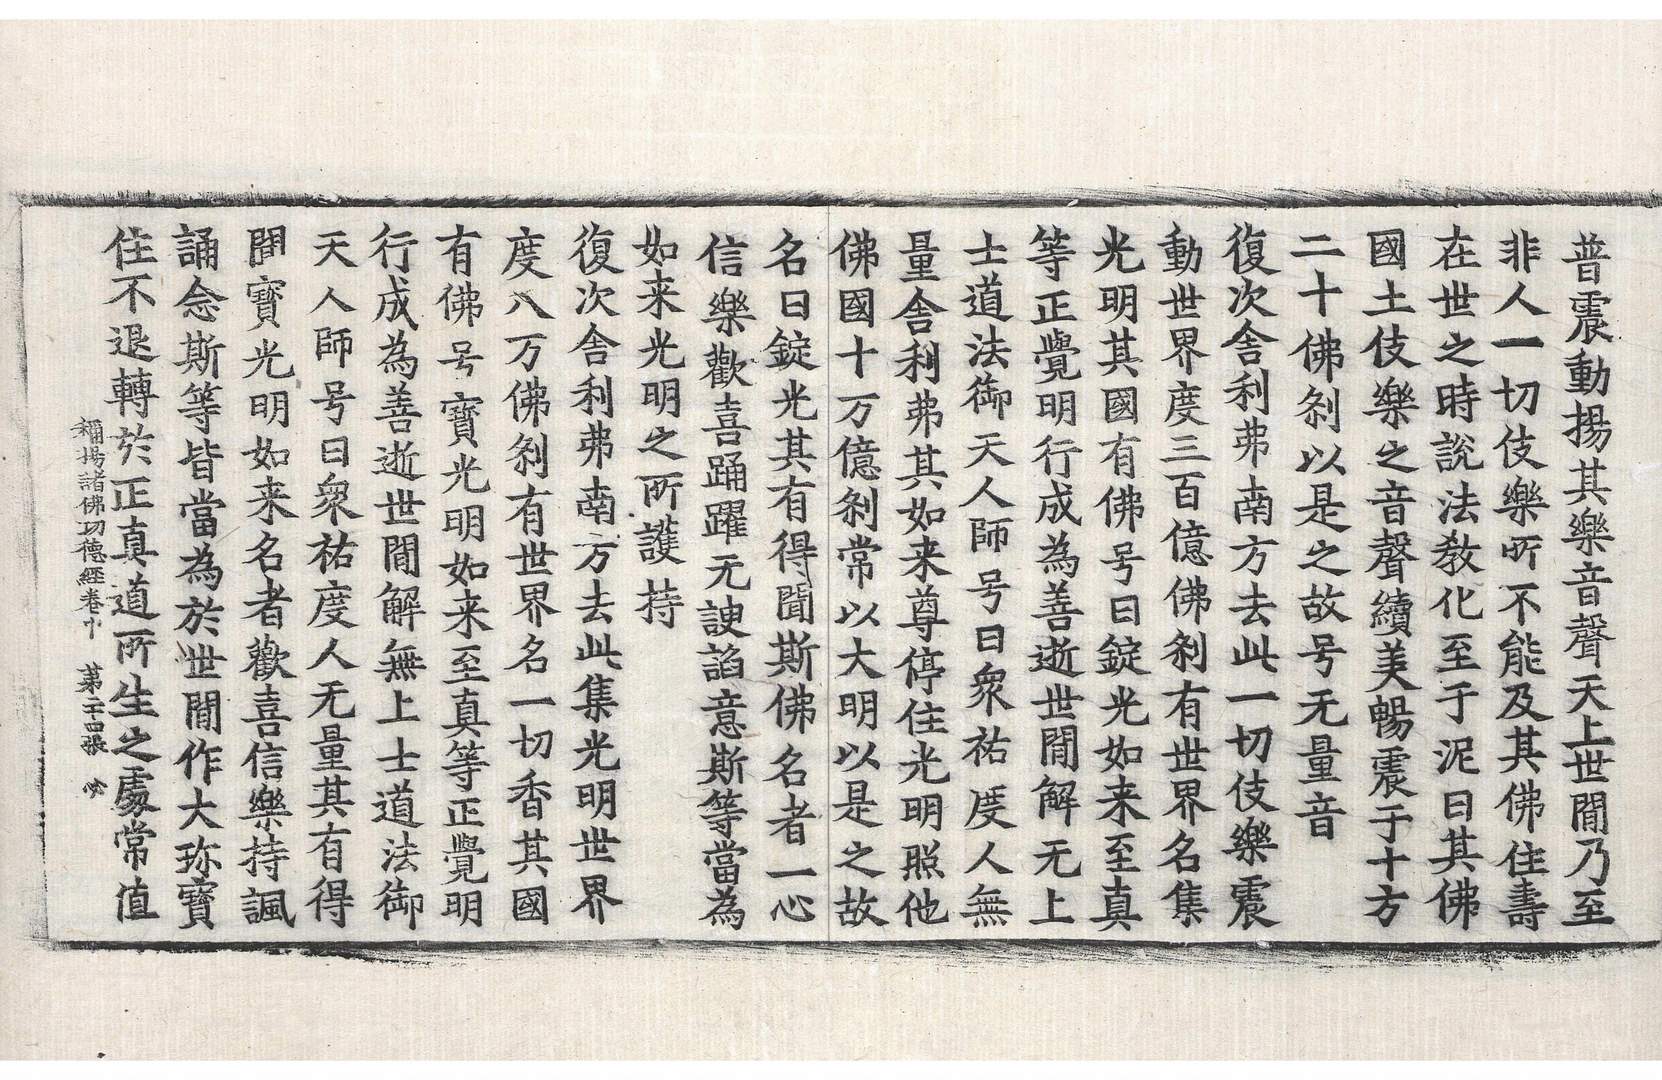 普震動揚其樂音聲天上世閒乃至
非人一切伎樂所不能及其佛住壽
在世之時說法教化至于泥曰其佛
國土伎樂之音聲續美暢震于十方
二十佛剎以是之故号无量音
復次舍利弗南方去此一切伎樂震
動世界度三百億佛剎有世界名集
光明其國有佛号曰錠光如来至真
等正覺明行成為善逝世閒解无上
士道法御天人師号曰衆祐度人無
量舍利弗其如来尊停住光明照他
佛國十万億剎常以大明以是之故
名曰錠光其有得聞斯佛名者一心
信樂歡喜踊躍无諛諂意斯等當為
如来光明之所護持
復次舍利弗南方去此集光明世界
度八万佛剎有世界名一切香其國
有佛号寶光明如来至真等正覺明
行成為善逝世閒解無上士道法御
天人師号曰衆祐度人无量其有得
聞寶光明如来名者歡喜信樂持諷
誦念斯等皆當為於世閒作大珎寶
住不退轉於正真道所生之處常值
稱揚諸佛功德經卷中　第二十四張